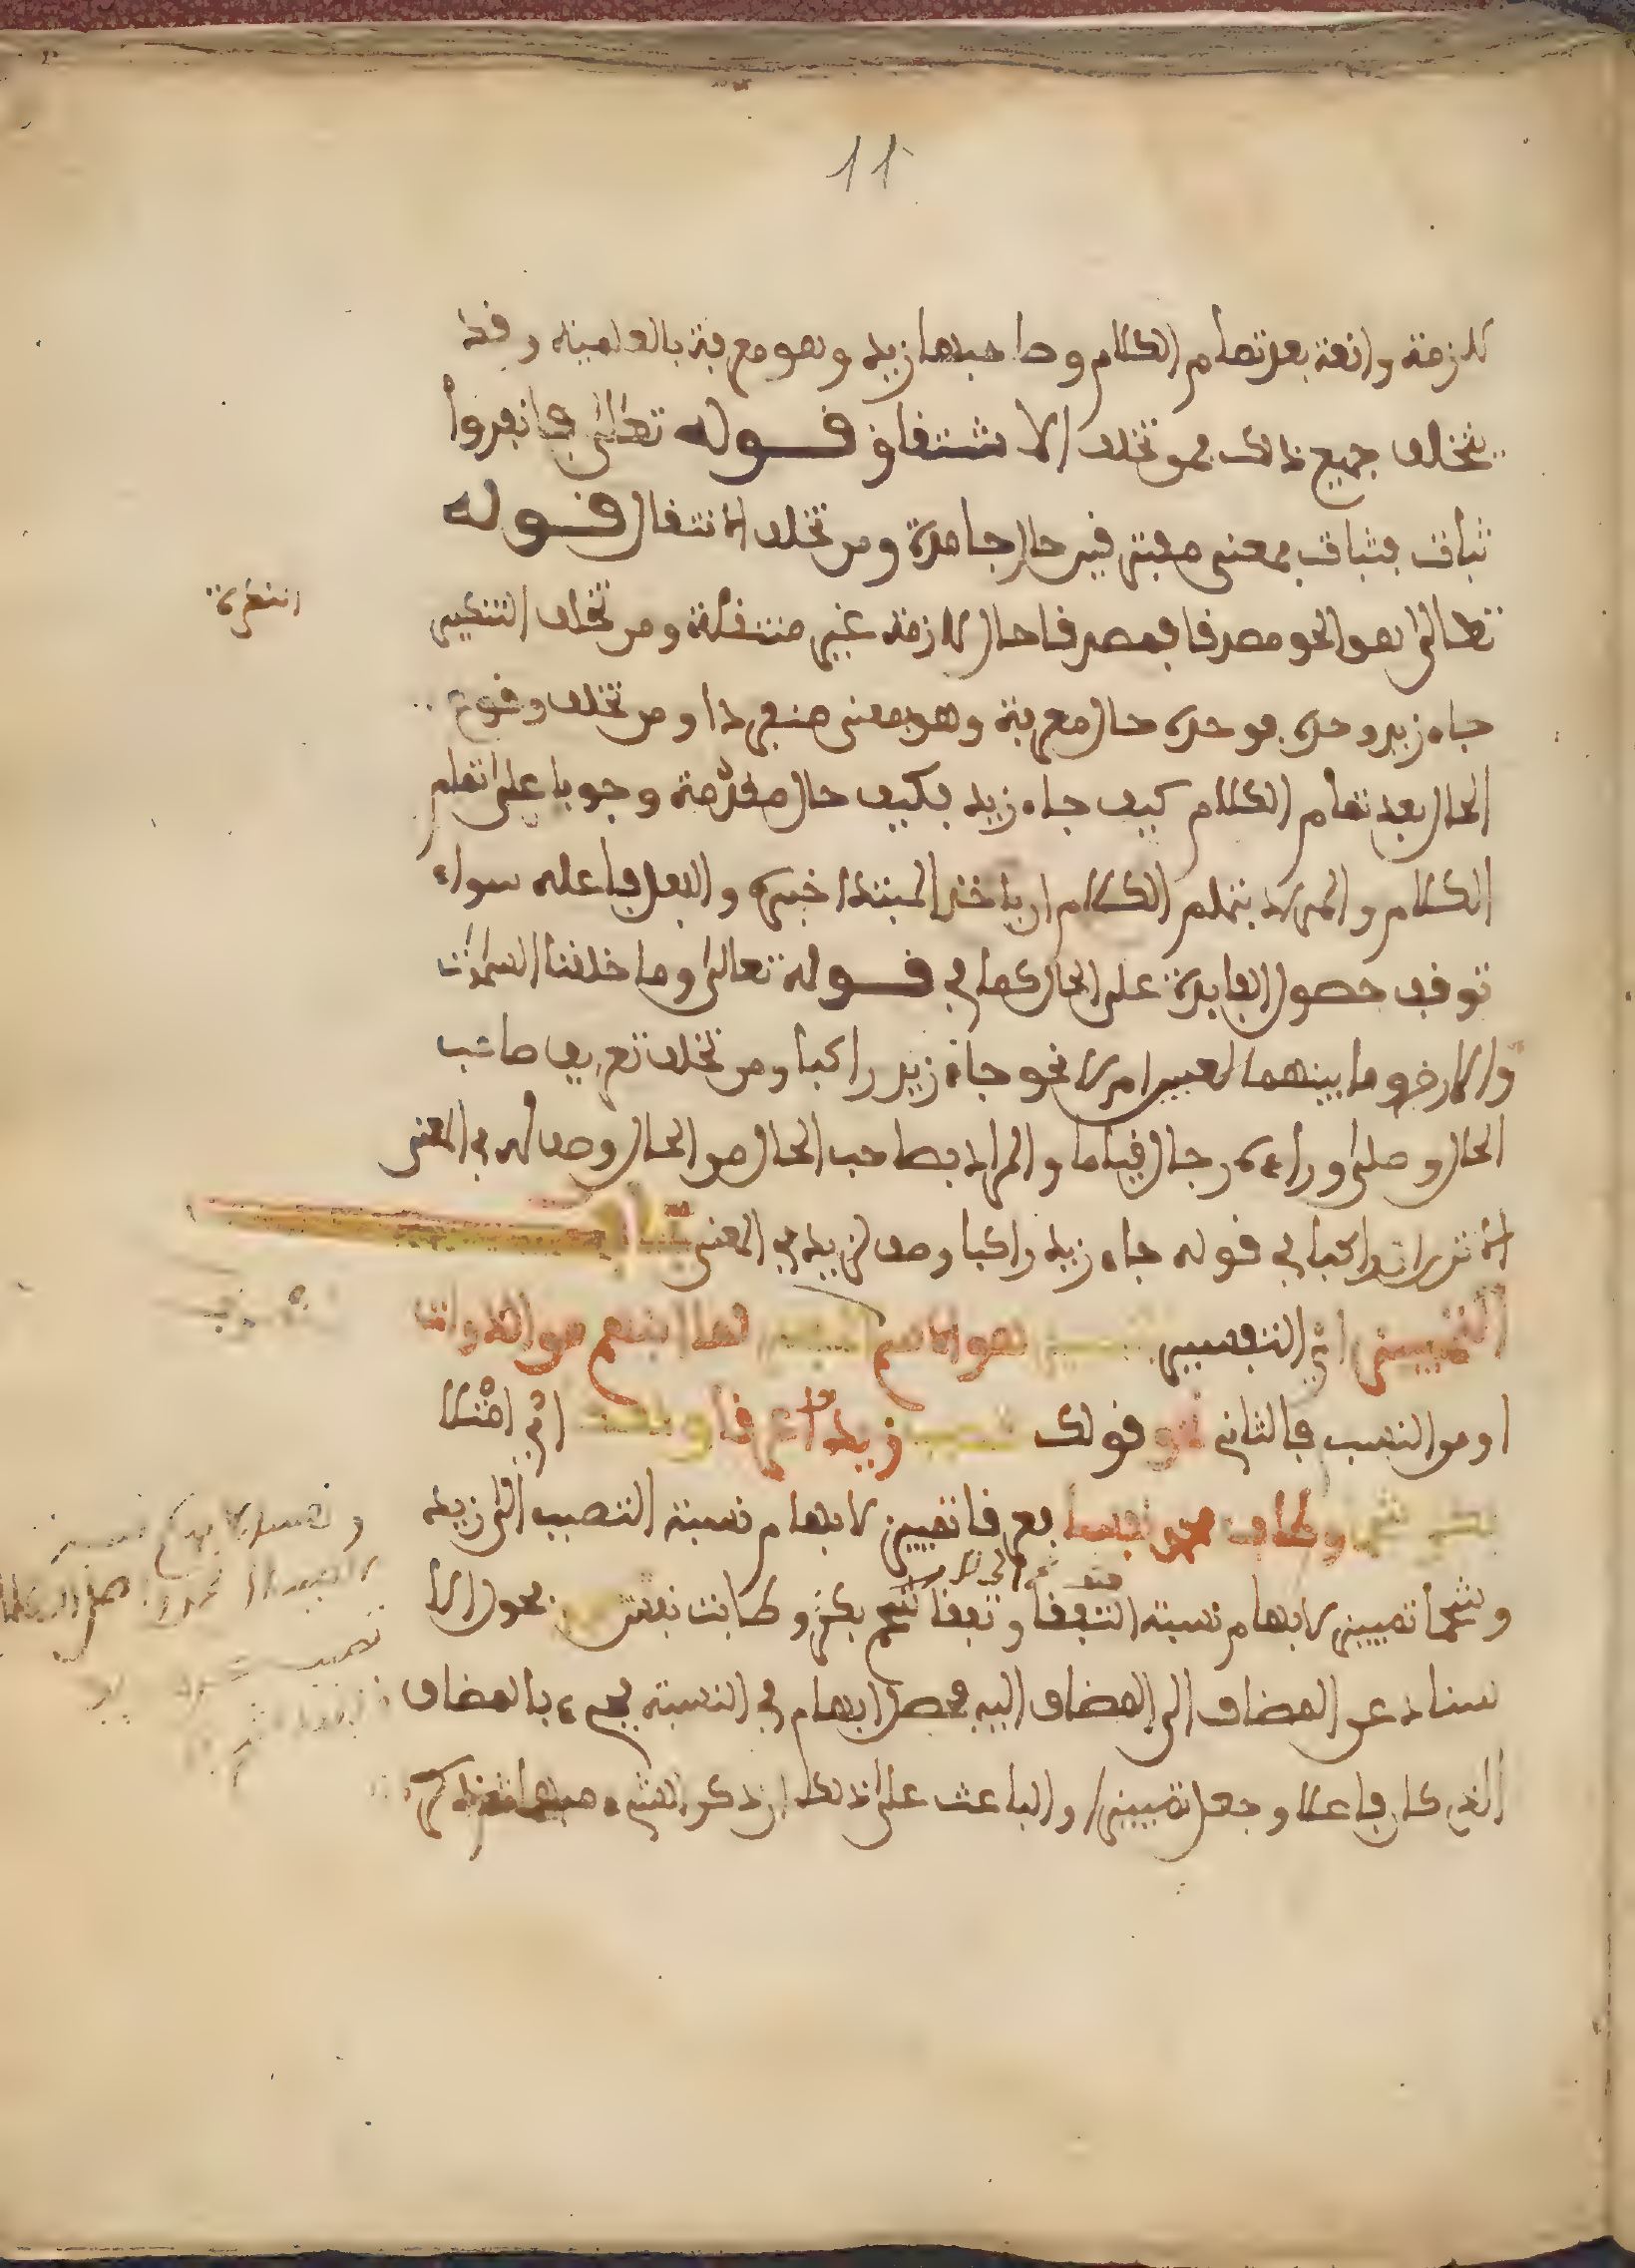 11
لازمة واقعة بعد تمام الكلام وصاحبها زيد وهو معرفة بالعلمية وقد
يتخلف جميع ذلك فمن تخلف الاشتقاق قوله تعالى فانفروا
ثبات فثبات بمعنى متفرقين حال جامدة ومن تخلف الانتقال قوله
تعالى هو الحق مصدقا فمصدقا حال لازمة غير منتقلة ومن تخلف التنكير
جاء زيد وحده فوحده حال معرفة وهو بمعنى منفردا ومن تخلف وقوع
الحال بعد تمام الكلام كيف جاء زيد فكيف حال مقدمة وجوبا على تمام
الكلام والمراد بتمام الكلام ان ياخذ المبتدا خبره والفعل فاعله سواء
توقف حصول الفايدة على الحال كما في قوله تعالى وما خلقنا السموات
والارض وما بينهما لعبين ام لا نحو جاء زيد راكبا ومن تخلف تعريف صاحب
الحال وصلى وراءه رجال قياما والمراد بصاحب الحال من الحال وصف له في المعنى
الا ترى ان راكبا في قوله جاء زيد راكبا وصف لزيد في المعنى باب
التمييز اي التفسير هو الاسم لما انبهم من الذوات
او من النسب فالثاني نحو قولك تصبب زيد عرقا و اي امتلا
بكر شحما وطاب محمد نفسا فعرقا تمييز لابهام نسبة التصبب الى زيد
وشحما تمييز لابهام نسبة التفقا وتفقا شحم بكر وطابت نفس فحول الا
سناد عن المضاف الى المضاف اليه فحصل ابهام في النسبة فجيء بالمضاف
الذي كان فاعلا وجعل تمييزا والباعث على ذلك ان ذكر الشيء مبهما ثم ذكره